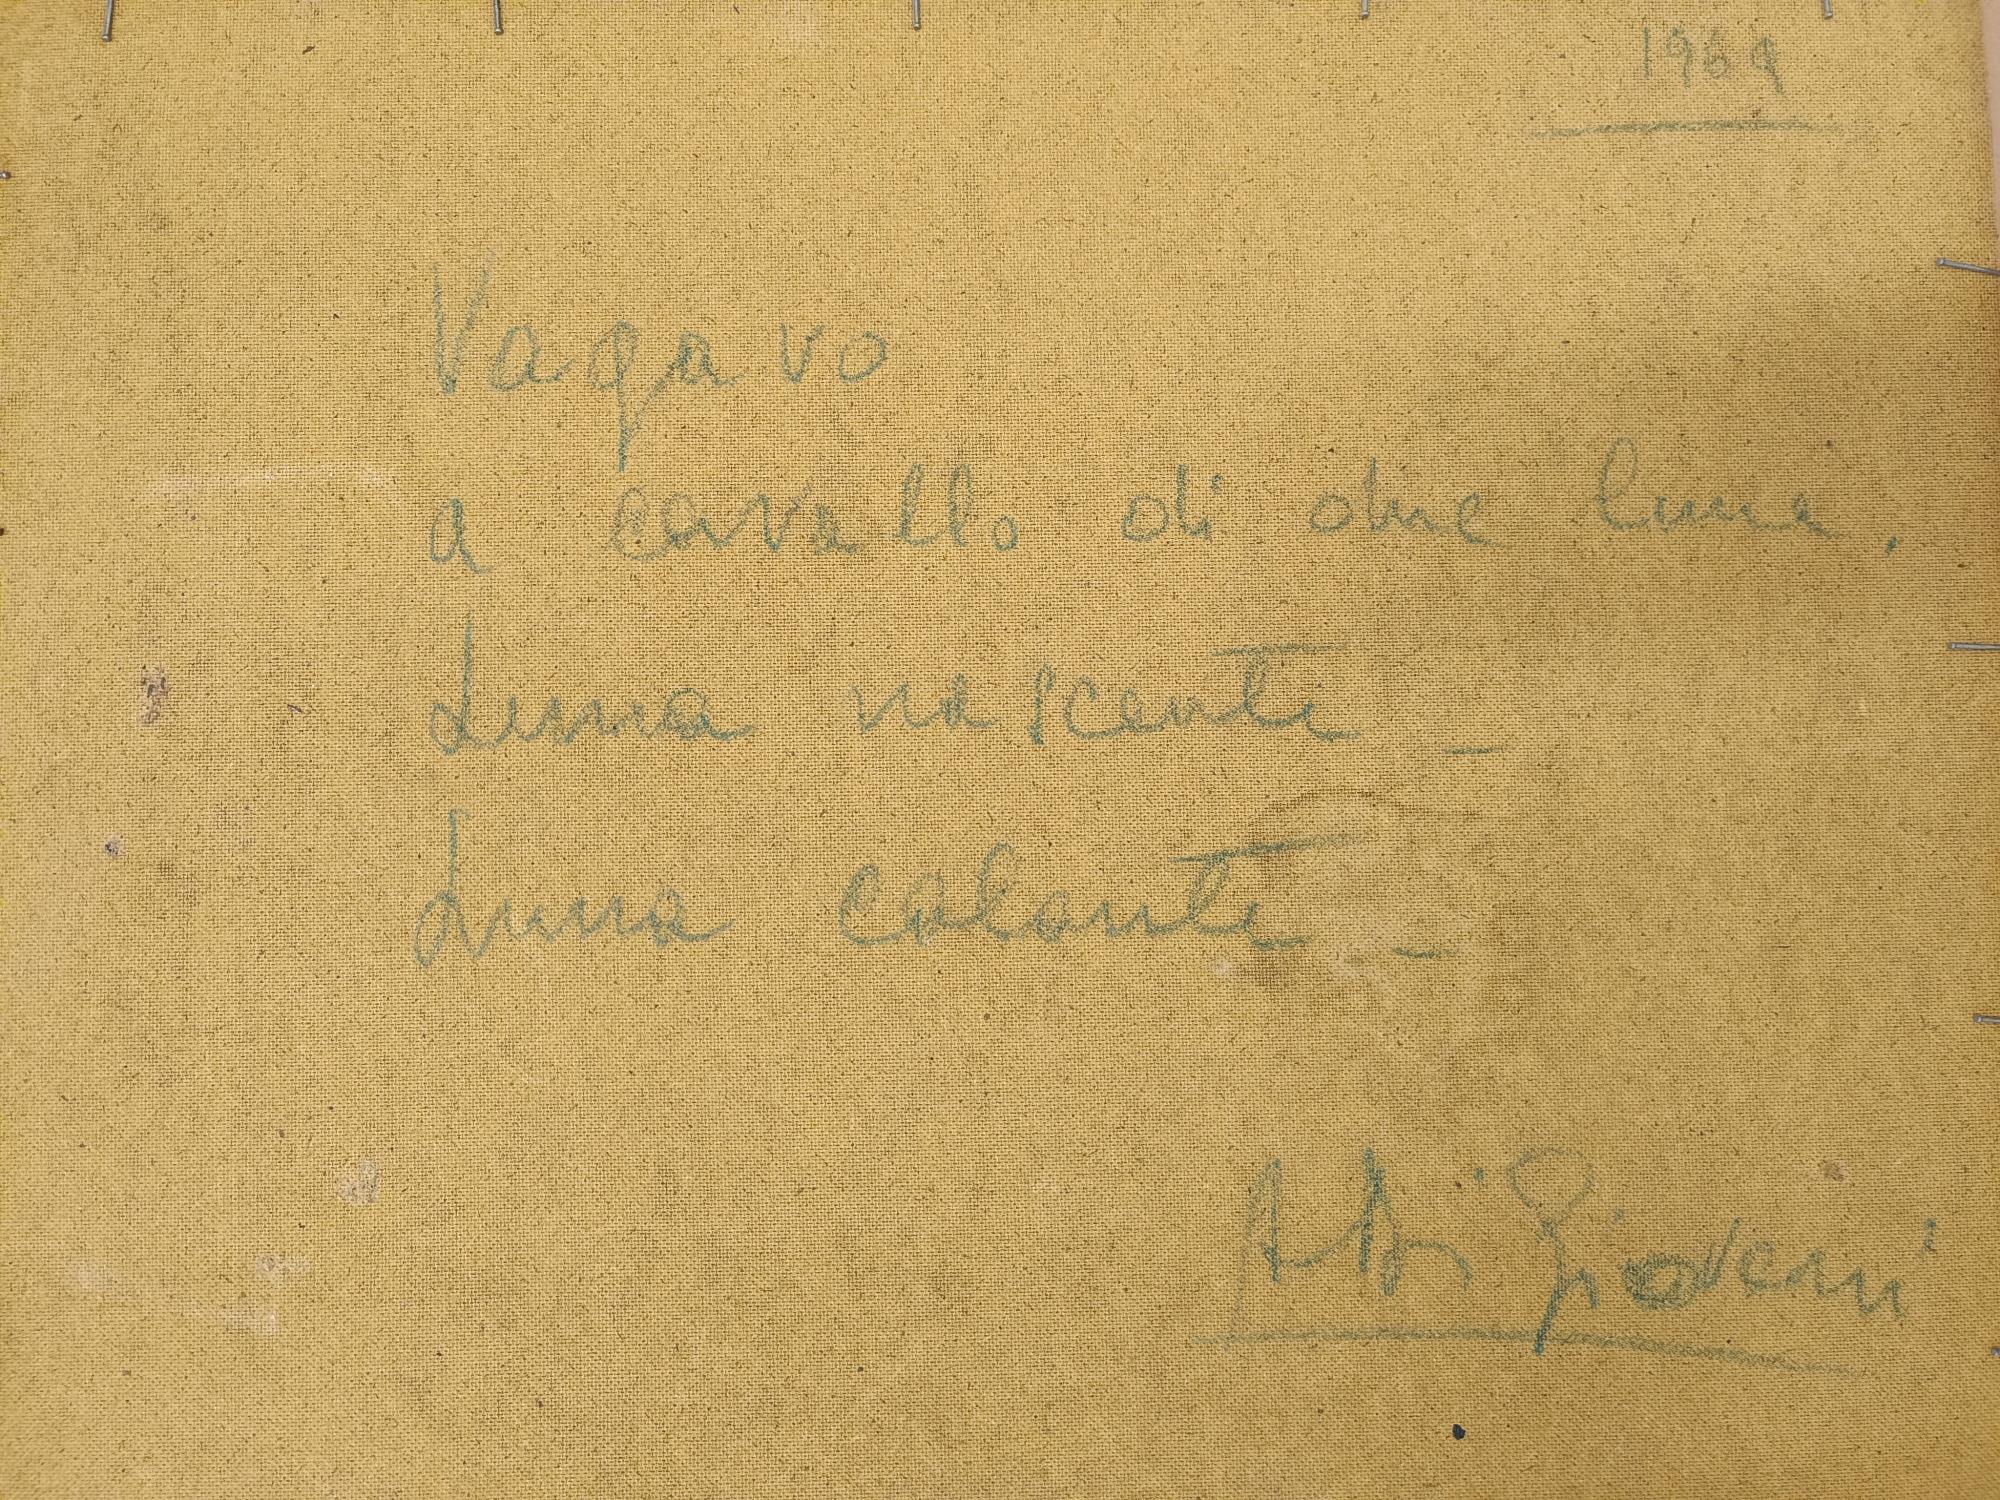 1969
Vagavo
a cavallo di due lune.
Luna nascente _
Luna calante _
A Di Giovanni